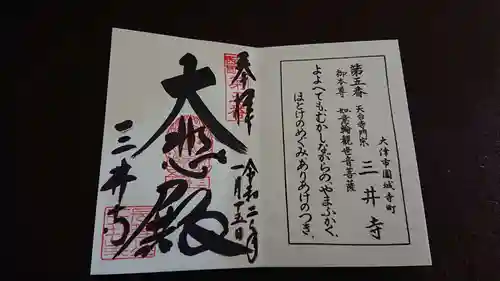 奉拝
大悲殿
三井寺
令和二年
一月十五日
大津市園城寺町
第五番 天台寺門宗 三井寺
御本尊 如意輪観世音菩薩
よよへても、むかしながらの、やまふかく、
ほとけのめぐみありあけのつき。